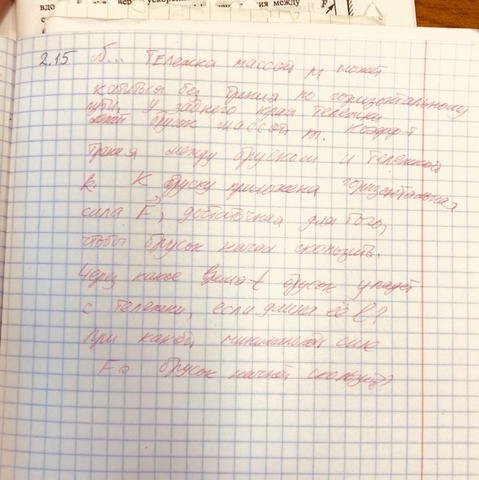 вдо
ускорен
ия между
F
2.15 Тележка массой M может
катиться без трения по горизонтальному
пути. У заднего края тележки
лежит брусок массой m. Коэф-т
трения между бруском и тележкой
k. К бруску приложена горизонтальная
сила F, достаточная для того,
чтобы брусок начал скользить.
Через какое время t брусок упадет
с тележки, если длина её l?
При какой минимальной силе
F₀ брусок начнет скользить?